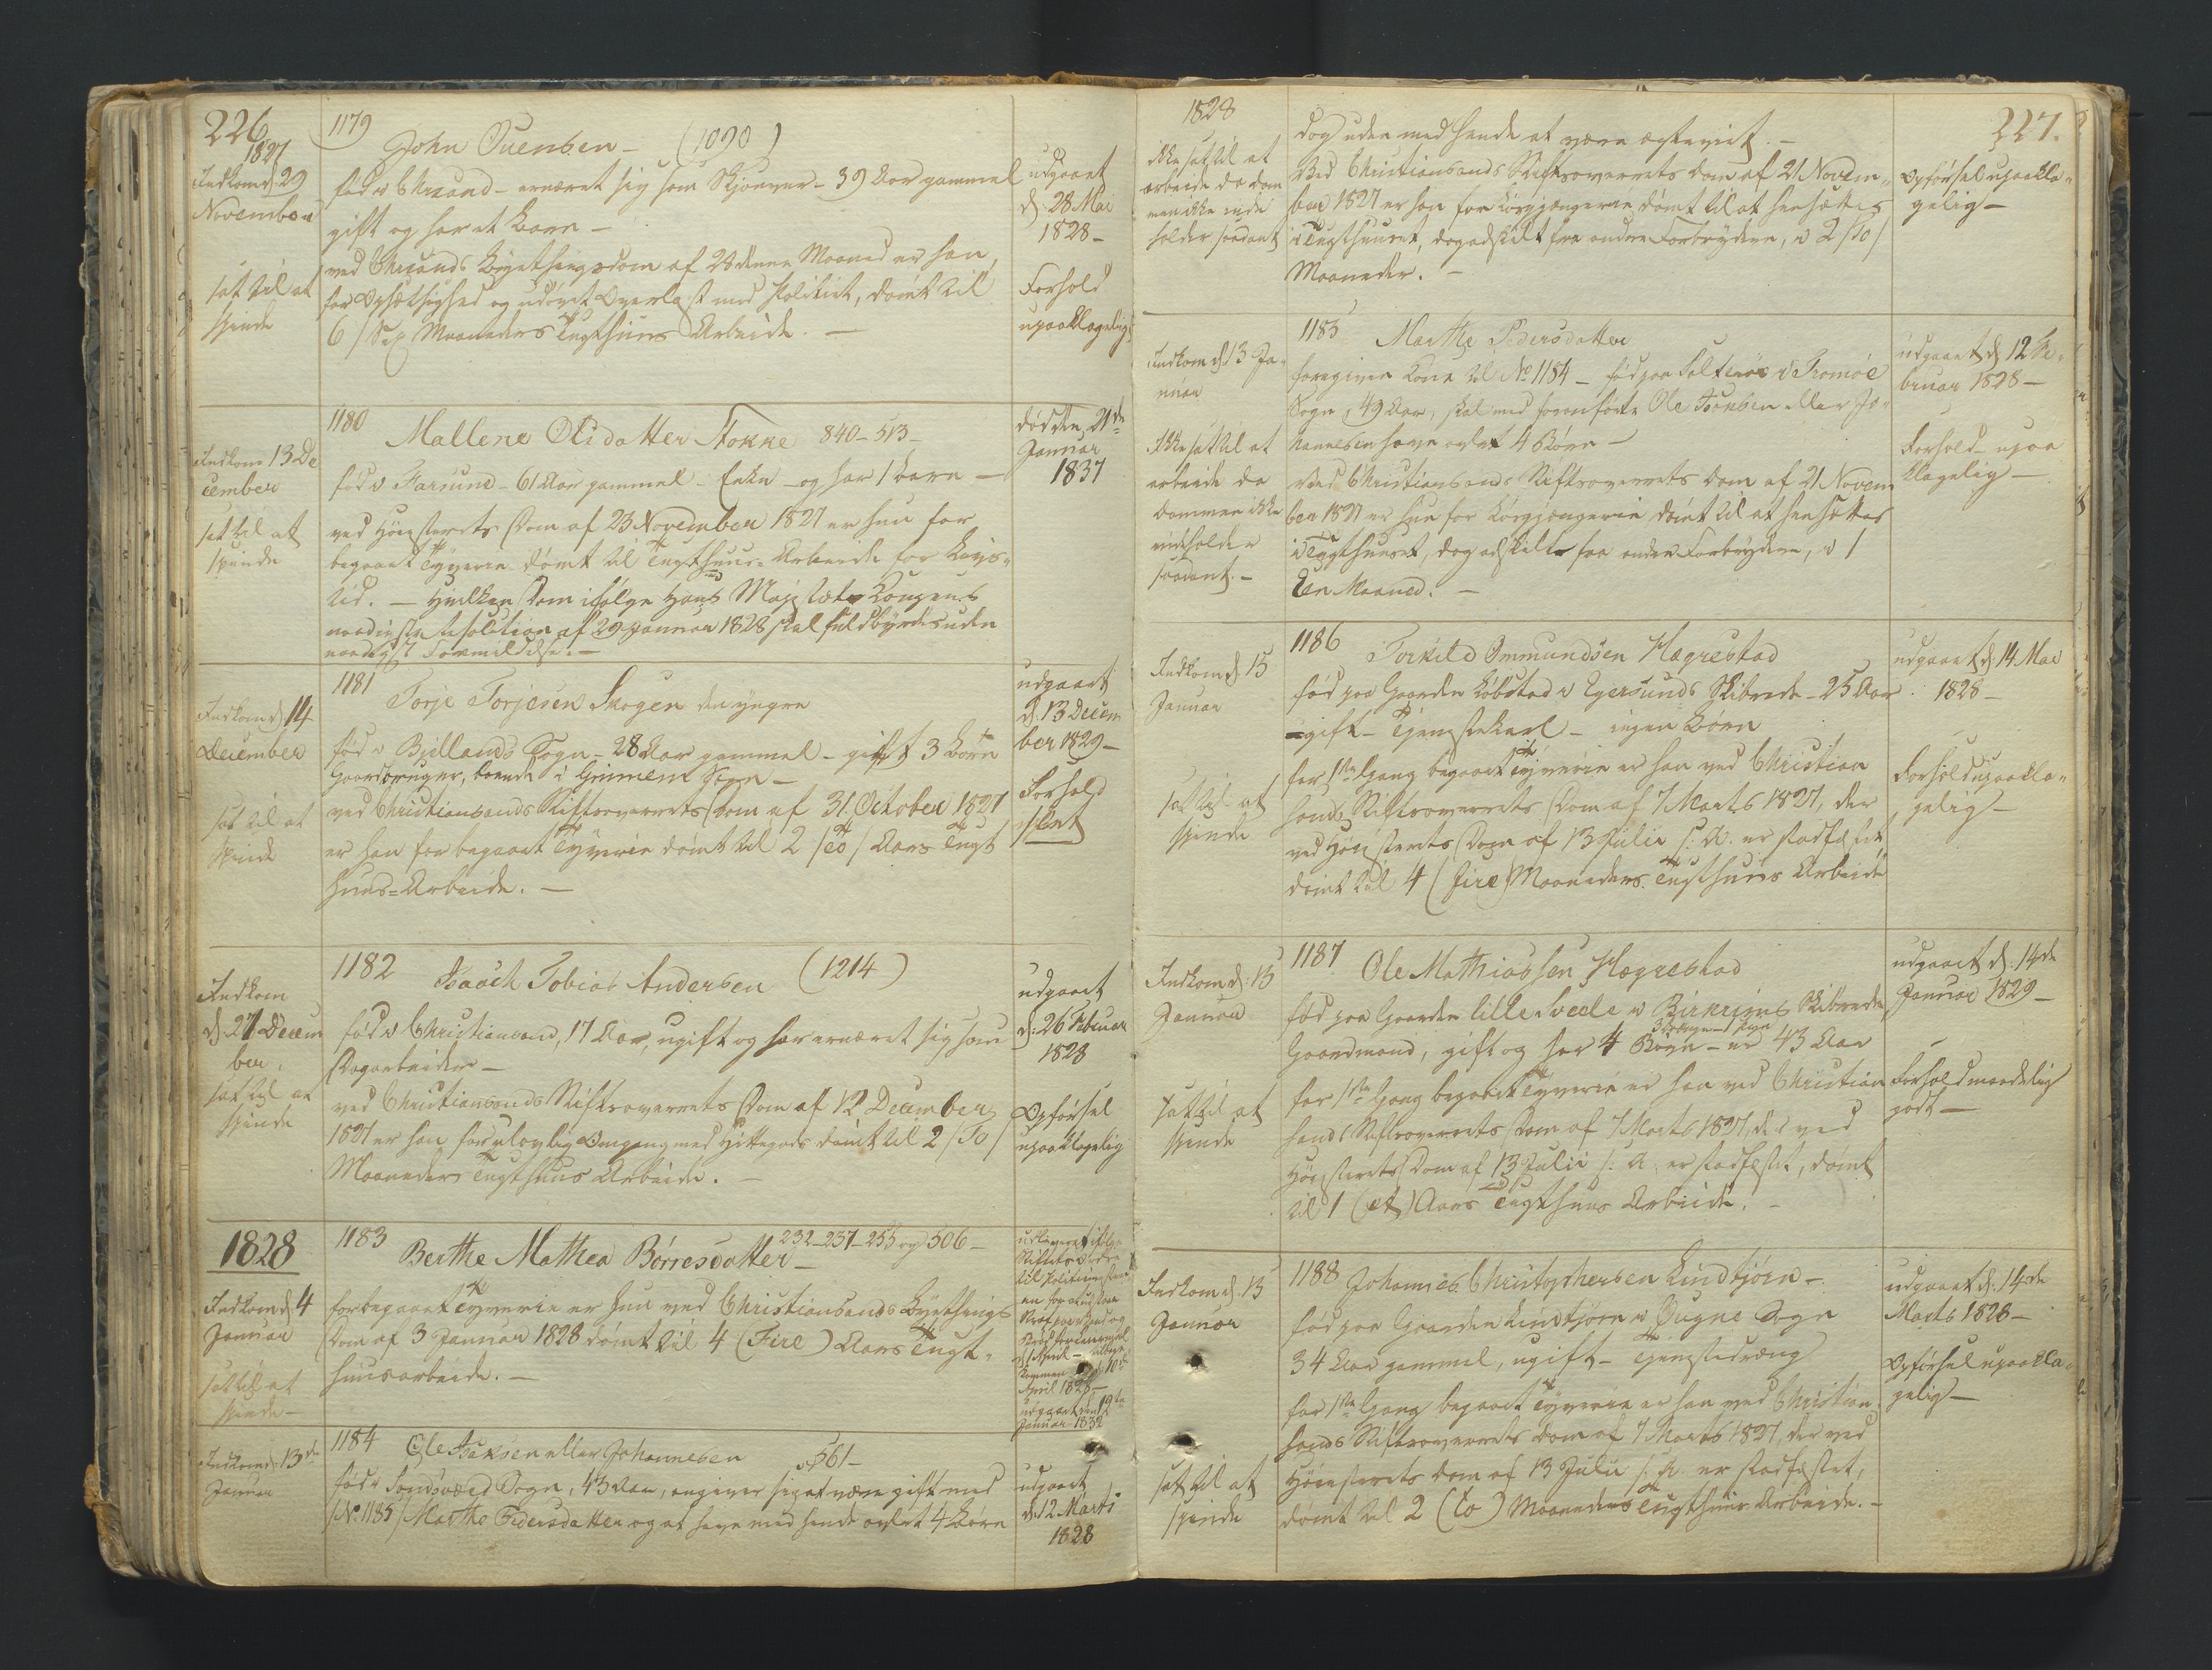 226
1827
Indkom d: 29
November
sat til at
spinde
1179
John Suensen - (1090)
fød i Chrsand - ernæret sig som Skjöuer - 39 Aar gammel
gift og har et Barn -
ved Chrsands Byethingsdom af 28 denne Maaned er han,
for Opsætsighed og udövet Overlast mod Politiet, dömt til
6 / Sex Maaneders Tugthuus Arbeide. -
udgaaet
d: 28 Mai
1828 -
Forhold
upaaklagelig
Indkom 13 De
cember
sat til at
spinde
1180
Mallene Olsdatter Stokke 840 - 513 -
fød i Farsund - 61 Aar gammel - Enke - og har 1 Barn -
ved Höiesterets Dom af 23 November 1827 er hun for
begaaet Tyverie dömt til Tugthuus-Arbeide for Livs-
tid. - Hvilken Dom ifölge Hans Majestæt Kongens
naadigste Resolution af 29 Januar 1828 skal fuldbyrdes uden
naadigst Formildelse. -
død den 21de
Januar
1837
Indkom d: 14
December
sat til at
spinde
1181
Torje Torjesen Skogen den yngre
fød i Bjellands Sogn - 28 Aar gammel - gift 3 Börn
Gaardbruger, boende i Grinnem Sogn -
ved Christiansands Stiftsoverrets Dom af 31 October 1827
er han for begaaet Tyverie dömt til 2 / to / Aars Tugt
huus-Arbeide. -
udgaaet
d. 13 Decem
ber 1829 -
Forhold
slet
Indkom
d: 27 Decem
ber,
sat til at
spinde
1182
Isaach Tobias Andersen (1214)
fød i Christiansand, 17 Aar, ugift og har ernæret sig som
Dagarbeider -
ved Christiansands Stiftsoverrets Dom af 12 December
1827 er han for ulovlig Omgang med Hittegods dömt til 2 / To /
Maaneders Tugthuus Arbeide. -
udgaaet
d: 26 Februar
1828
Opförsel
upaaklagelig
1828
Indkom d: 4
Januar
sat til at
spinde -
1183
Berthe Mathea Börresdatter - 232 - 237 - 255 og 506 -
for begaaet Tyverie er hun ved Christiansands Byethings
Dom af 3 Januar 1828 dömt til 4 (Fire) Aars Tugt-
huusarbeide. -
April 1828 -
udgaaet den 19de
Januar 1832
Indkom d: 13de
Januar
1184
Ole Isaksen eller Johannesen 561 -
fød i Söndsvæd Sogn, 43 Aar, angiver sig at være gift med
/ No 1185 / Marthe Pedersdatter og at have med hende avlet 4 Börn
udgaaet
d: 12 Marts
1828
1828
227.
ikke sat til at
arbeide da dom
men ikke inde
holder saadant
dog uden med hende at være ægteviet. -
Ved Christiansands Stiftsoverrets Dom af 21 Novem-
ber 1827 er han for Lösgjængerie dömt til at hensættes
i Tugthuuset, dog adskilt fra andre Forbrydere, i 2 / To /
Maaneder. -
Opförsel upaakla-
gelig -
Indkom d: 13 Ja-
nuar
Ikke sat til at
arbeide da
Dommen ikke
indeholder
saadant. -
1185
Marthe Pedersdatter
foregiven Kone til No 1184 - fød paa i Tromöe
Sogn, 49 Aar, skal med forommeldte Ole Isaksen eller Jo-
hannesen have avlet 4 Börn -
Ved Christiansands Stiftsoverrets Dom af 21 Novem
ber 1827 er hun for Lösgjængerie dömt til at hensættes
i Tugthuuset, dog adskilt fra andre Forbrydere, i 1
Een Maaned. -
udgaaet d: 12 Fe-
bruar 1828 -
Forhold upaa
klagelig -
Indkom d: 15
Januar
sat til at
spinde
1186
Torkild Ommundsen Hægrestad
fød paa Gaarden Löbstad i Egersunds Skibrede - 25 Aar
gift - Tjenestekarl - ingen Börn
for 1ste Gang begaaet Tyverie er han ved Christian
sands Stiftsoverrets Dom af 7 Marts 1827, der
ved Höiesterets Dom af 13 Julii s: A. er stadfæstet,
dömt til 4 (fire) Maaneders Tugthuus Arbeide
udgaaet d: 14 Mai
1828 -
Forhold upaakla-
gelig -
Indkom d: 15
Januar
sat til at
spinde
1187
Ole Mathiassen Hægrestad
fød paa Gaarden lille Svele i Birkrims Skibrede
Gaardmand, gift og har 4 Börn - er 43 Aar
for 1ste Gang begaaet Tyverie er han ved Christian
sands Stiftsoverrets Dom af 7 Marts 1827, der ved
Höiesterets Dom af 13 Julii s: A. er stadfæstet, dömt
til 1 (et) Aars Tugthuus Arbeide. -
udgaaet d: 14de
Januar 1829 -
Forhold maadelig
godt -
Indkom d: 15
Januar
sat til at
spinde
1188
Johannes Christophersen Lindtjörn -
fød paa Gaarden Lindtjörn i Sogn
34 Aar gammel, ugift - Tjenestedreng
for 1ste Gang begaaet Tyverie er han ved Christian
sands Stiftsoverrets Dom af 7 Marts 1827, der ved
Höiesterets Dom af 13 Julii s: A. er stadfæstet,
dömt til 2 (to) Maaneders Tugthuus Arbeide. -
udgaaet d: 14de
Marts 1828 -
Opförsel upaakla-
gelig -